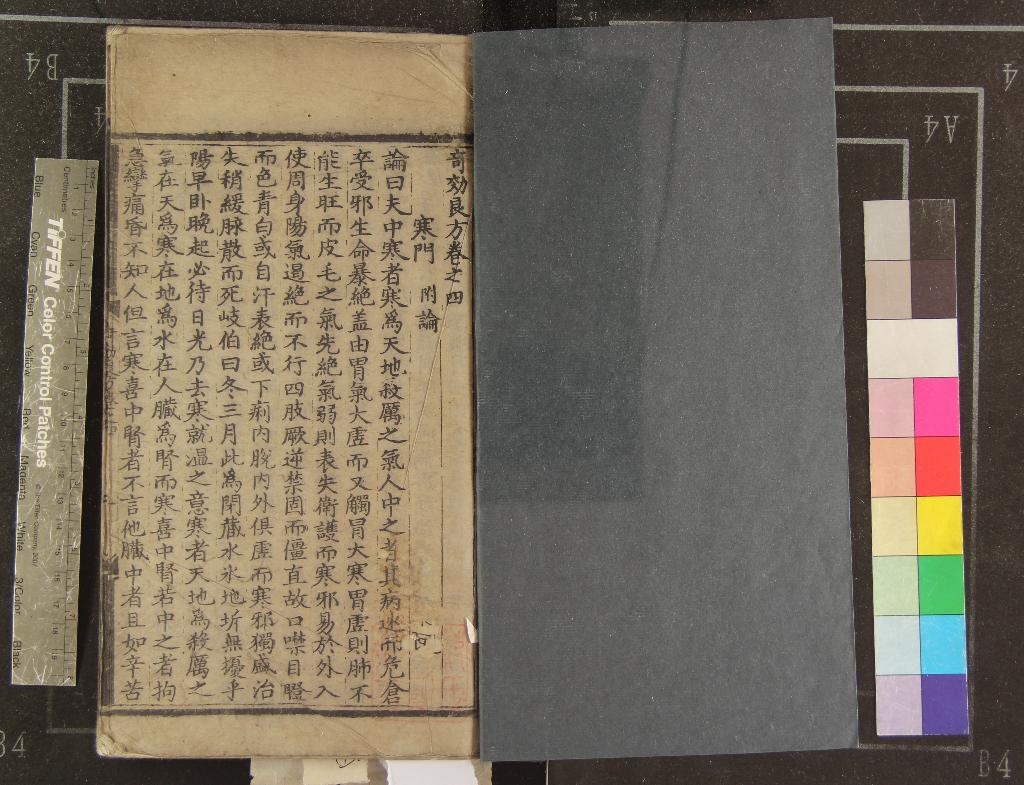 奇効良方卷之四
寒門 附論
論曰夫中寒者寒爲天地殺厲之氣人中之者其病速而危倉
卒受邪生命暴絶盖由胃氣大虛而又觸冒大寒胃虛則肺不
能生旺而皮毛之氣先絶氣弱則表失衛護而寒邪易於外入
使周身陽氣遏絶而不行四肢厥逆禁固而僵直故口噤目瞪
而色青白或自汗表絶或下痢内脫内外俱虛而寒邪獨盛治
失稍緩脉散而死岐伯曰冬三月此爲閉藏水氷地坼無擾乎
陽早臥晚起必待日光乃去寒就溫之意寒者天地爲殺厲之
氣在天爲寒在地爲水在人臟爲腎而寒喜中腎若中之者拘
急攣痛昏不知人但言寒喜中腎者不言他臟中者且如辛苦
B4
A4
4
4
B4
B4
Centimetres
TIFFEN Color Control Patches
© The Tiffen Company, 2007
Blue
Cyan
Green
Yellow
Red
Magenta
White
3/Color
Black